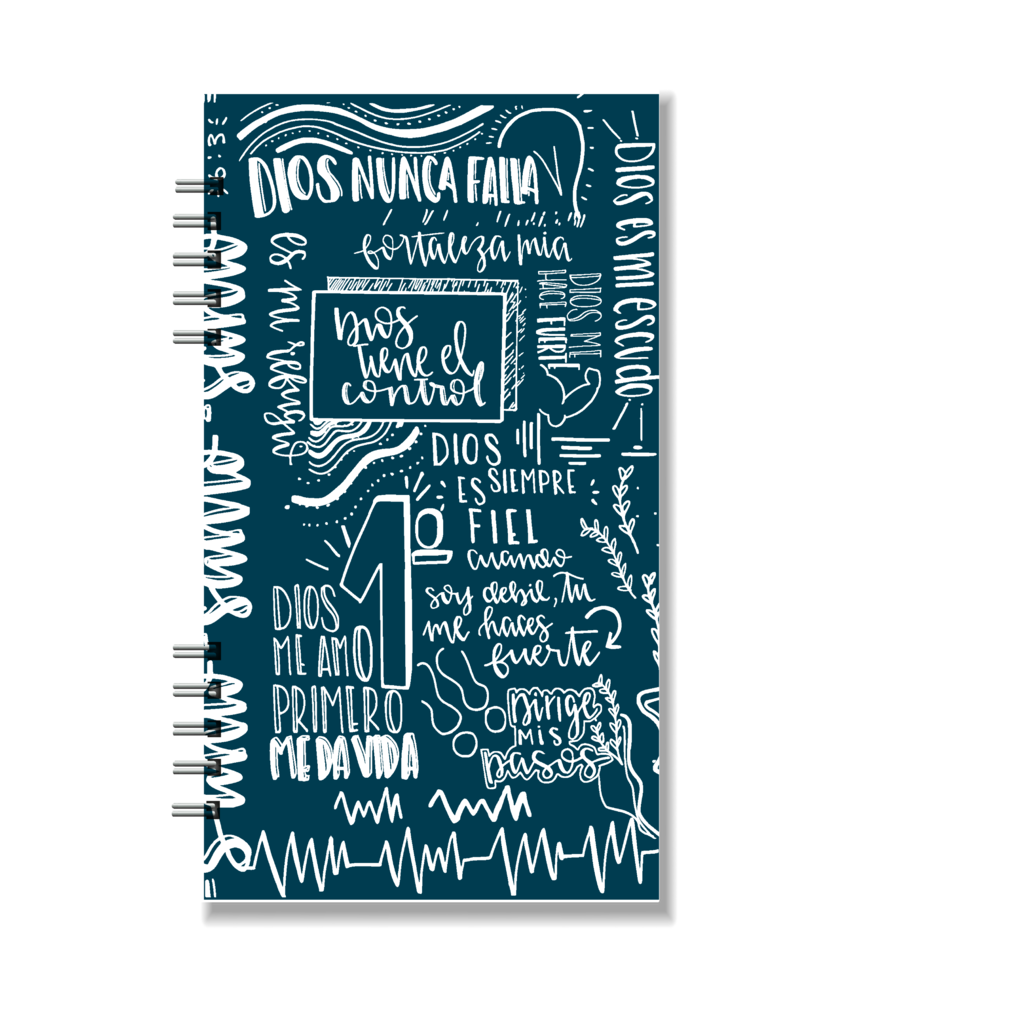 DIOS NUNCA FALLA
fortaleza mia
es mi refugio
Dios
tiene el
control
DIOS ME
HACE FUERTE
DIOS es mi escudo
DIOS
ES SIEMPRE
FIEL
cuando
soy debil, tu
me haces
fuerte
1º
DIOS
ME AMO
PRIMERO
ME DA VIDA
Dirige
MIS
pasos